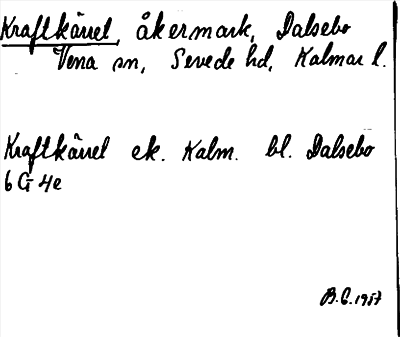 Kraftkärret, åkermark, Dalsebo
Vena sn, Sevede hd, Kalmar l.
Kraftkärret ek. Kalm. bl. Dalsebo
6 G 4e
B.C. 1957